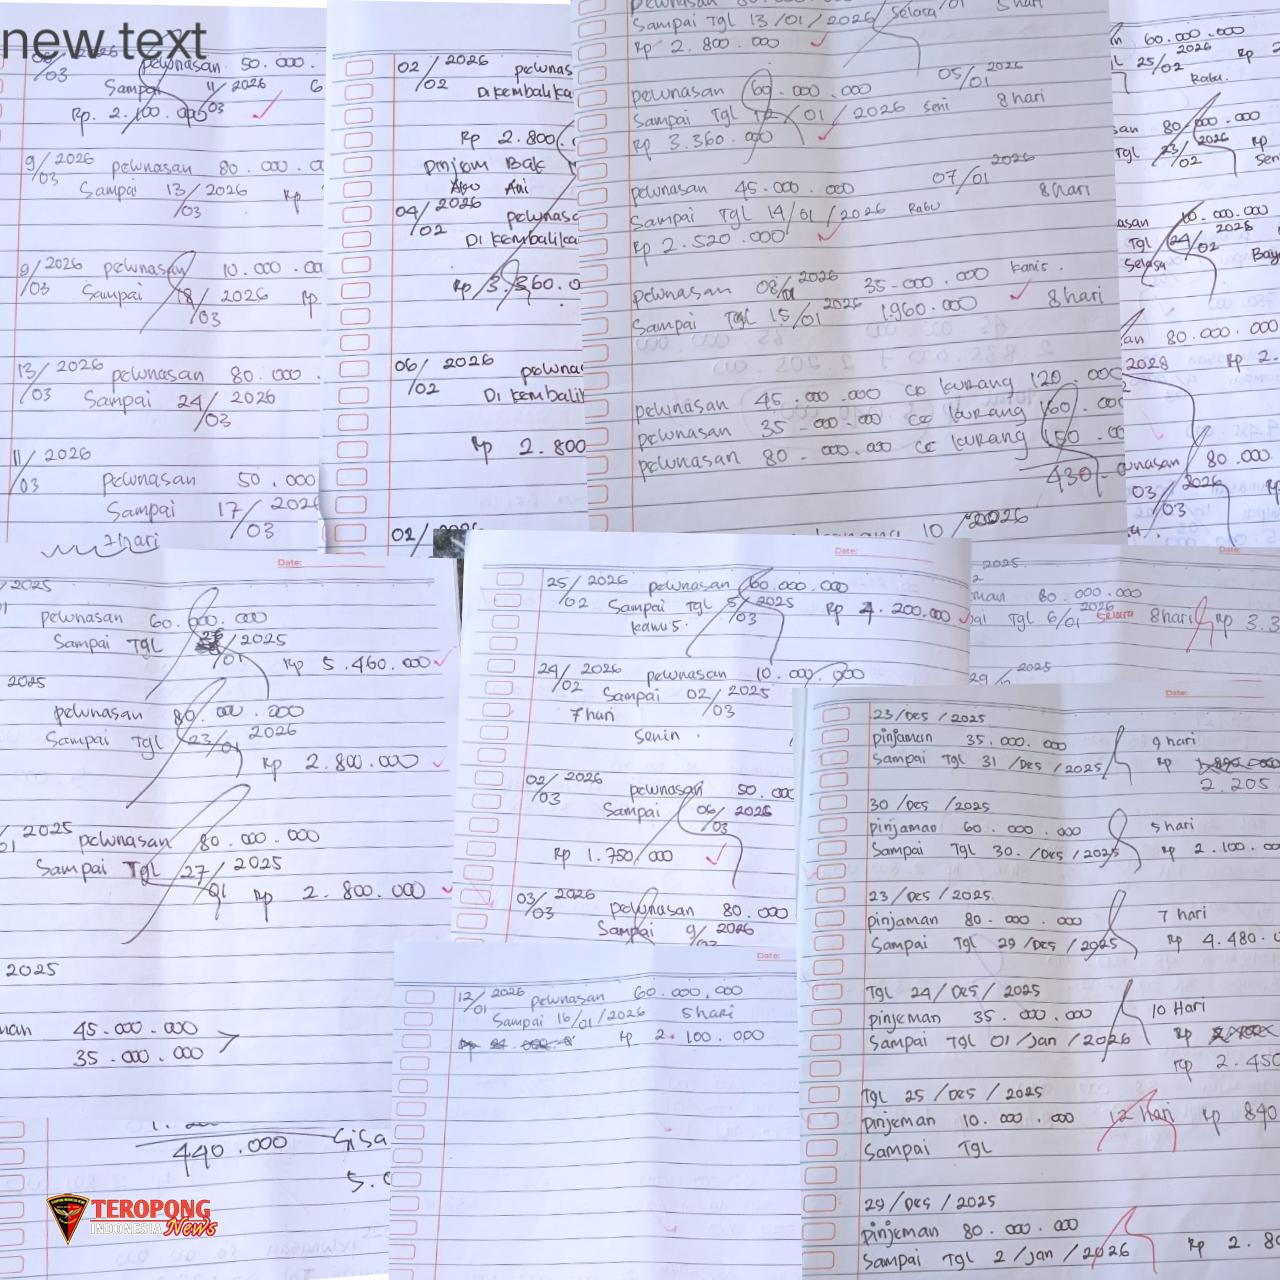 new text
/03
pelunasan 50.000.
Sampai 11/2026 6
/03
Rp. 2.100.000
9/2026 pelunasan 80.000.00
/03 Sampai 13/2026 Rp
/03
9/2026 pelunasan 10.000.00
/03 Sampai 18/2026 Rp
/03
13/2026 pelunasan 80.000
/03 Sampai 24/2026
/03
11/2026
/03 pelunasan 50.000
Sampai 17/2026
/03
7 hari
02/2026 pelunas
/02 Di kembalika
Rp 2.800
Pinjam Bak
Ayo Ani
04/2026 pelunasa
/02 Di kembalika
Rp 3.360.0
06/2026 peluna
/02 Di kembalik
Rp 2.800
02/2026
Sampai Tgl 13/01/2026 Selasa 5 hari
Rp 2.800.000
05/2026
/01
pelunasan 60.000.000
Sampai Tgl 12/01/2026 Seni 8 hari
Rp 3.360.000
07/2026
/01
pelunasan 45.000.000
Sampai Tgl 14/01/2026 Rabu 8 hari
Rp 2.520.000
pelunasan 08/2026 35-000.000 kamis.
/01
Sampai Tgl 15/2026 1.960.000 8 hari
/01
pelunasan 45.000.000 CC kurang 120.000
pelunasan 35-000.000 CC kurang 160.000
pelunasan 80-000.000 CC kurang 150.00
430
10/2026
60.000.000
25/2026 Rp
/02 Rabu.
san 80/000.000
Tgl 23/2026 Rp
/02 Seni
asan 10.000.000
Tgl 24/2025
/02
Selasa Baya
an 80.000.000
2028 Rp 2.
unasan 80.000
03/2026
/03
2025
pelunasan 60.000.000
Sampai Tgl /2025
/01 Rp 5.460.000
2025
pelunasan 80.000.000
Sampai Tgl 23/2026
/01
Rp 2.800.000
/2025 pelunasan 80.000.000
01
Sampai Tgl 27/2025
Rp 2.800.000
2025
man 45.000.000
35.000.000
440.000 Sisa
5.0
TEROPONG
INDONESIA News
Date:
25/2026 pelunasan 60.000.000
/02 Sampai Tgl 5/2025 Rp 4.200.000
/03
kamis.
24/2026 pelunasan 10.000.000
/02 Sampai 02/2025
/03
7 hari
Senin.
02/2026 pelunasan 50.000
/03 Sampai 06/2026
/03
Rp 1.750.000
03/2026 pelunasan 80.000
/03 Sampai 9/2026
Date:
12/2026 pelunasan 60.000.000
/01 Sampai 16/01/2026 5 hari
Rp 2.100.000
2025
man 80.000.000
Tgl 6/2026 Selasa 8 hari Rp 3.3
/01
29/2025
Date:
23/Des/2025
pinjaman 35.000.000 9 hari
Sampai Tgl 31/Des/2025 Rp
2.205
30/Des/2025
pinjaman 60.000.000 5 hari
Sampai Tgl 30./Des/2025 Rp 2.100.00
23/Des/2025.
pinjaman 80.000.000 7 hari
Sampai Tgl 29/Des/2025 Rp 4.480.0
Tgl 24/Des/2025
pinjeman 35.000.000 10 Hari
Sampai Tgl 01/Jan/2026 Rp
Rp 2.450
Tgl 25/Des/2025
pinjeman 10.000.000 12 hari Rp 840
Sampai Tgl
29/Des/2025
pinjeman 80.000.000
Sampai Tgl 2/Jan/2026 Rp 2.80